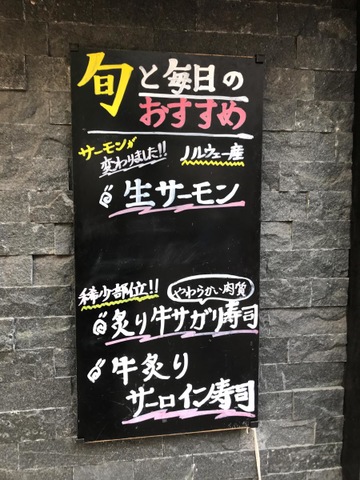 旬と毎日の
おすすめ
サーモンが
変わりました!!
ノルウェー産
生サーモン
稀少部位!!
やわらかい肉質
炙り牛サガリ寿司
牛炙り
サーロイン寿司